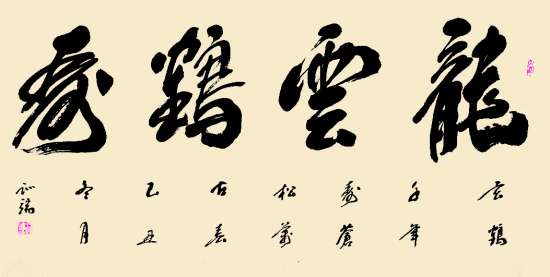 龍雲鶴壽
鶴
千年
壽蒼
松萬
古春
乙丑
冬月